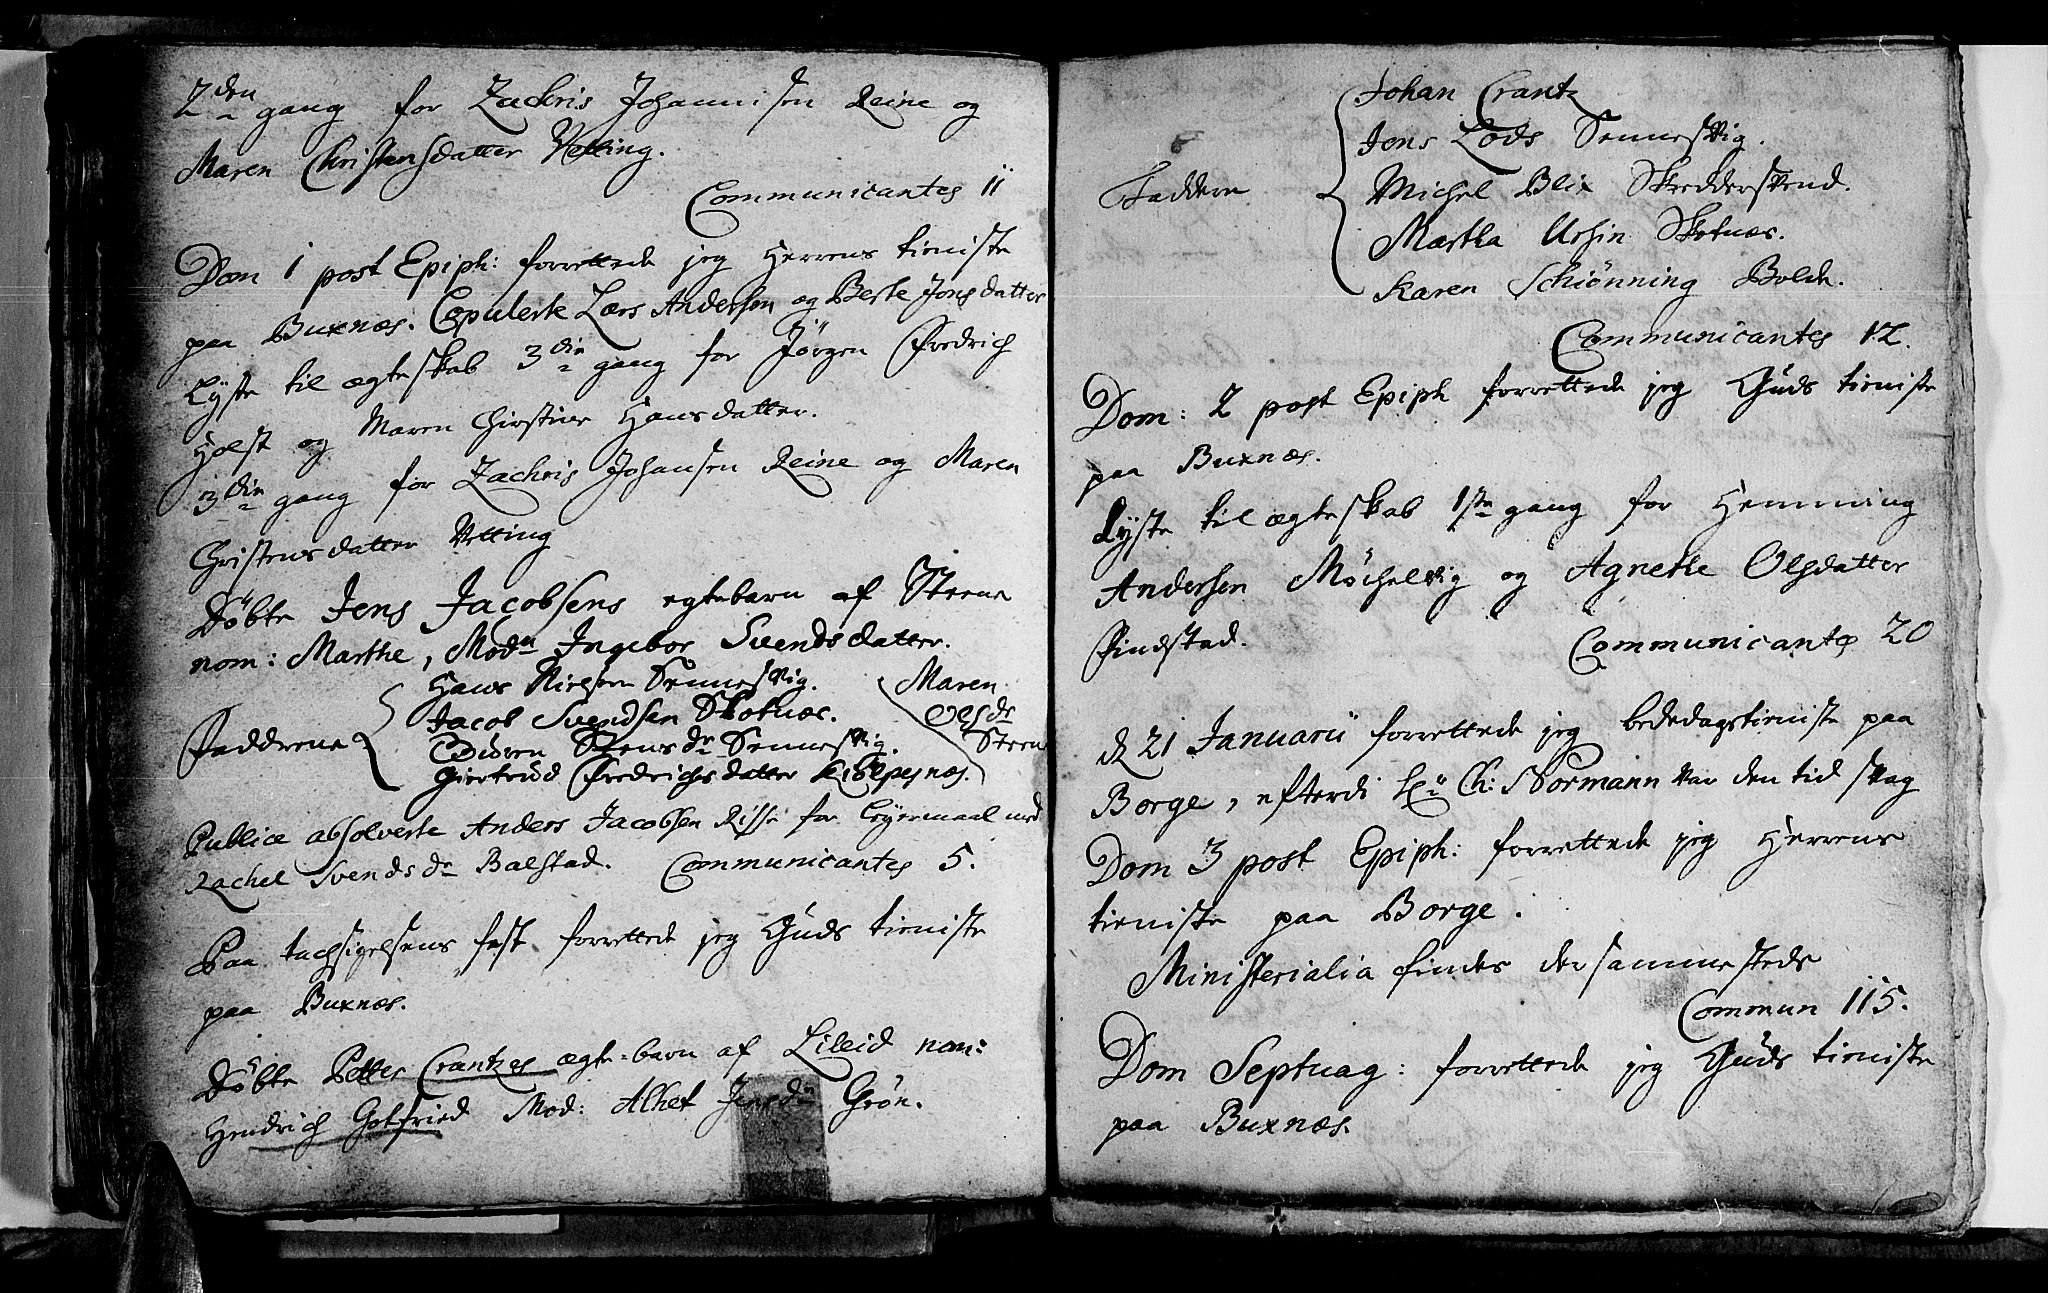 2den gang for Zachris Johannisen Reine og
Maren Christensdatter Vetting.
Communicantes 11
Dom 1 post Epiph: forrettede jeg Herrens tieniste
paa Buxnæs. Copulerte Lars Andersen og Berte Jonsdatter
Lyste til ægteskab 3die gang for Jörgen Fredrich
Holst og Maren Christine Hansdatter.
3die gang for Zachris Johansen Reine og Maren
Christensdatter Vetting
Döbte Jens Jacobsens egtebarn af Steene
nom: Marthe, Moden Ingebor Svendsdatter.
Hans Nielsen Sennesvig.
Jacob Svendsen Skotnæs.
Fadderne
Sennesvig.
Giertrud Fredrichsdatter Kiölpesnæs.
Maren
Olsdr
Steene
Publice absolverte Anders Jacobsen Risse for Leyermaal med
Rachel Svendsdr Balstad. Communicantes 5.
Paa tachsigelsens fest forrettede jeg Guds tieniste
paa Buxnæs.
Döbte Petter Crantzes ægte-barn af Lileid nom:
Hendrich Gotfried Mod: Alhet Jensdr Grön.
Johan Crantz
Jens Lods Sennesvig.
Faddere
Michel Blix Skedderskend.
Martha Ursin Skotnæs.
Karen Schiönning Bolde.
Communicantes 12.
Dom: 2 post Epiph forrettede jeg Guds tieniste
paa Buxnæs.
Lyste til ægteskab 1ste gang for Hemming
Andersen Möchelvig og Agnethe Olsdatter
Findstad. Communicantes 20
d 21 Januarii forrettede jeg bededagstieniste paa
Borge, efterdi Hr Ch: Normann var den tid svag
Dom 3 post Epiph: forrettede jeg Herrens
tieniste paa Borge.
Ministerialia findes der sammesteds
Commun 115.
Dom Septuag: forrettede jeg Guds tieniste
paa Buxnæs.